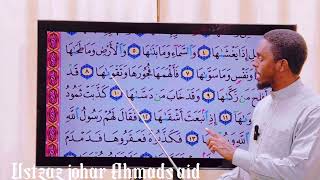 إِذَا يَغْشَىٰهَا ٤ وَٱلسَّمَآءِ وَمَا بَنَىٰهَا ٥ وَٱلْأَرْضِ وَمَا طَحَىٰهَا
وَنَفْسٍ وَمَا سَوَّىٰهَا ٧ فَأَلْهَمَهَا فُجُورَهَا وَتَقْوَىٰهَا ٨ قَدْ
مَن زَكَّىٰهَا ٩ وَقَدْ خَابَ مَن دَسَّىٰهَا ١٠ كَذَّبَتْ ثَمُودُ
إِذِ ٱنۢبَعَثَ أَشْقَىٰهَا ١٢ فَقَالَ لَهُمْ رَسُولُ ٱللَّهِ
ٱللَّهِ وَسُقْيَٰهَا ١٣ فَكَذَّبُوهُ فَعَقَرُوهَا فَدَمْدَمَ
Ustzaz johar Ahmadsaid